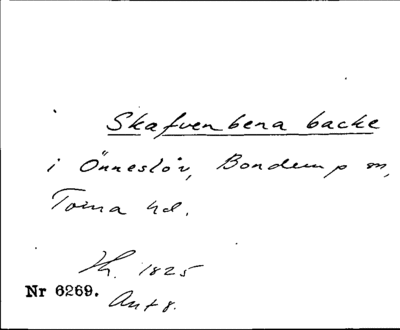 Skafvenbena backe
i Önneslöv, Bonderup sn,
Torna hd.
Lh. 1825
Nr 6269.
Ant 8.